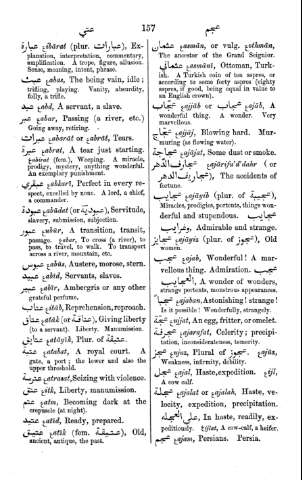 عتي
157
عجم
عبارة ؏ibārat (plur. عبارات), Ex-
planation, interpretation, commentary,
amplification. A trope, figure, allusion.
Sense, meaning, intent, phrase.
عبث ؏abas, The being vain, idle;
trifling, playing. Vanity, absurdity,
folly, a trifle.
عبد ؏abd, A servant, a slave.
عبر ؏abar, Passing (a river, etc.)
Going away, retiring.
عبرات ؏abarāt or ؏abrāt, Tears.
عبرة ؏abrat, A tear just starting.
؏abirat (fem.), Weeping. A miracle,
prodigy, mystery, anything wonderful.
An exemplary punishment.
عبقري ؏abkarī, Perfect in every re-
spect, excelled by none. A lord, a chief,
a commander.
عبودة ؏abūdat (or عبودية), Servitude,
slavery, submission, subjection.
عبور ؏ubūr, A transition, transit,
passage. ؏abar, To cross (a river), to
pass, to travel, to walk. To transport
across a river, mountain, etc.
عبوس ؏abūs, Austere, morose, stern.
عبيد ؏abīd, Servants, slaves.
عبير ؏abīr, Ambergris or any other
grateful perfume.
عتاب ؏itāb, Reprehension, reproach.
عتاق ؏atāk (or عتاقة), Giving liberty
(to a servant). Liberty. Manumission.
عتايق ؏atāyik, Plur. of عتيقة.
عتبة ؏atabat, A royal court. A
gate, a port; the lower and also the
upper threshold.
عترسة ؏atrasat, Seizing with violence.
عتق ؏itk, Liberty, manumission.
عتم ؏atm, Becoming dark at the
crepuscle (at night).
عتيد ؏atīd, Ready, prepared.
عتيق ؏atīk (fem. عتيقة), Old,
ancient, antique, the past.
عثمان ؏asmān, or vulg. ؏othmān,
The ancestor of the Grand Seignior.
عثماني ؏asmānī, Ottoman, Turk-
ish. A Turkish coin of ten aspres, or
according to some forty aspres (eighty
aspres, if good, being equal in value to
an English crown).
عجاب ؏ajjāb or عجاب ؏ajāb, A
wonderful thing. A wonder. Very
marvellous.
عجاج ؏ajjāj, Blowing hard. Mur-
muring (as flowing water).
عجاجة ؏ajājat, Some dust or smoke.
عجارف الدهر ؏ajārifu'd'dahr (or
عجاريف الدهر), The accidents of
fortune.
عجايب ؏ajāyib (plur. of عجيبة),
Miracles, prodigies, portents, things won-
derful and stupendous. عجايب
وغرايب, Admirable and strange.
عجايز ؏ajāyis (plur. of عجوز), Old
women.
عجب ؏ajab, Wonderful! A mar-
vellous thing. Admiration. عجب
العجايب, A wonder of wonders,
strange portents, monstrous appearances.
عجبا ؏ajaban, Astonishing! strange!
Is it possible! Wonderfully, strangely.
عجة ؏ujjat, An egg, fritter, or omelet.
عجرفة ؏ajarafat, Celerity; precipi-
tation, inconsiderateness, temerity.
عجز ؏ajuz, Plural of عجوز. ؏ajz,
Weakness, infirmity, debility.
عجل ؏ajal, Haste, expedition. ؏ijl,
A cow calf.
عجلة ؏ajalat or ؏ajalah, Haste, ve-
locity, expedition, precipitation.
على العجله, In haste, readily, ex-
peditiously. ؏ijlat, A cow-calf, a heifer.
عجم ؏ajam, Persians. Persia.